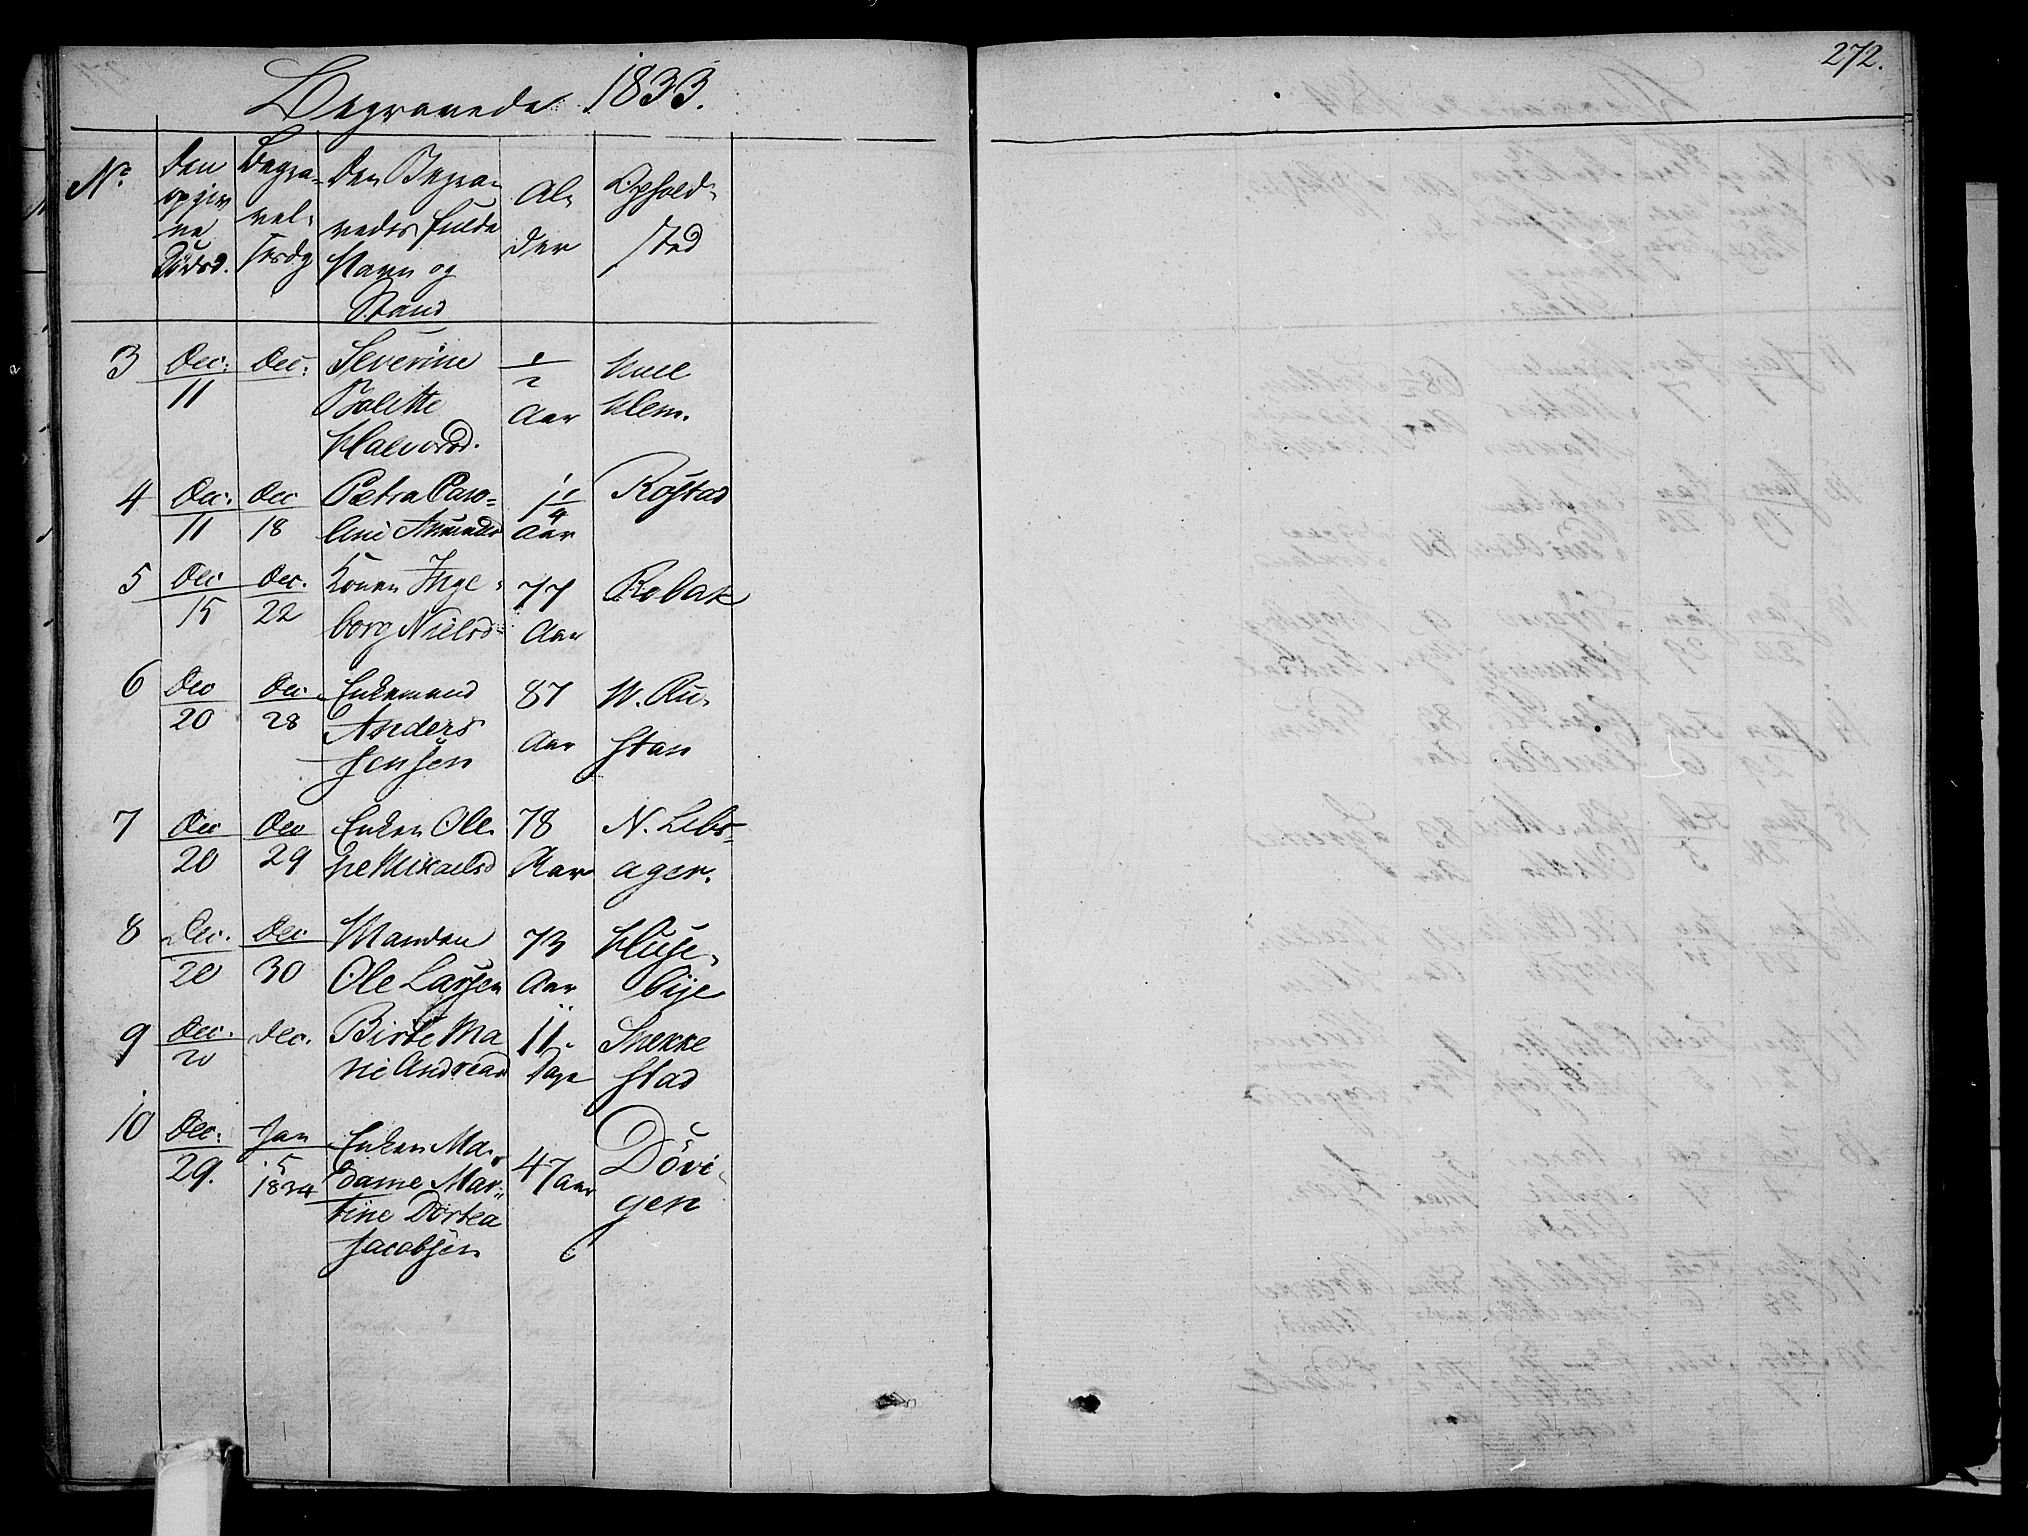 Begravede 1833.
272.
No
Den opgivne Dødsd.
Begravelsesdag
Den Begravedes fulde Navn og Stand
Alder
Opholdsted
3 Dec. 11 Dec. Severine Bolette Halvorsd. 1/2 Aar
4 Dec. 11 Dec 18 Petra Caroline Amundsd 1 1/4 Aar Røstad
5 Dec 15 Dec. 22 Konen Ingeborg Nielsd 77 Aar Robak
6 Dec 20 Dec. 28 Enkemand Anders Jensen 87 Aar
7 Dec 20 Dec 29 Enken Oline Mikaelsd 78 Aar N. Lebsager.
8 Dec. 20 Dec 30 Manden Ole Larsen 73 Aar Husebye
9 Dec. 20 Dec. Birte Marie Andread 11 Dage Snekkestad
10 Dec. 29. Jan 5 1834 Enken Madame Martine Dortea Jacobsen 47 aar Dövigen